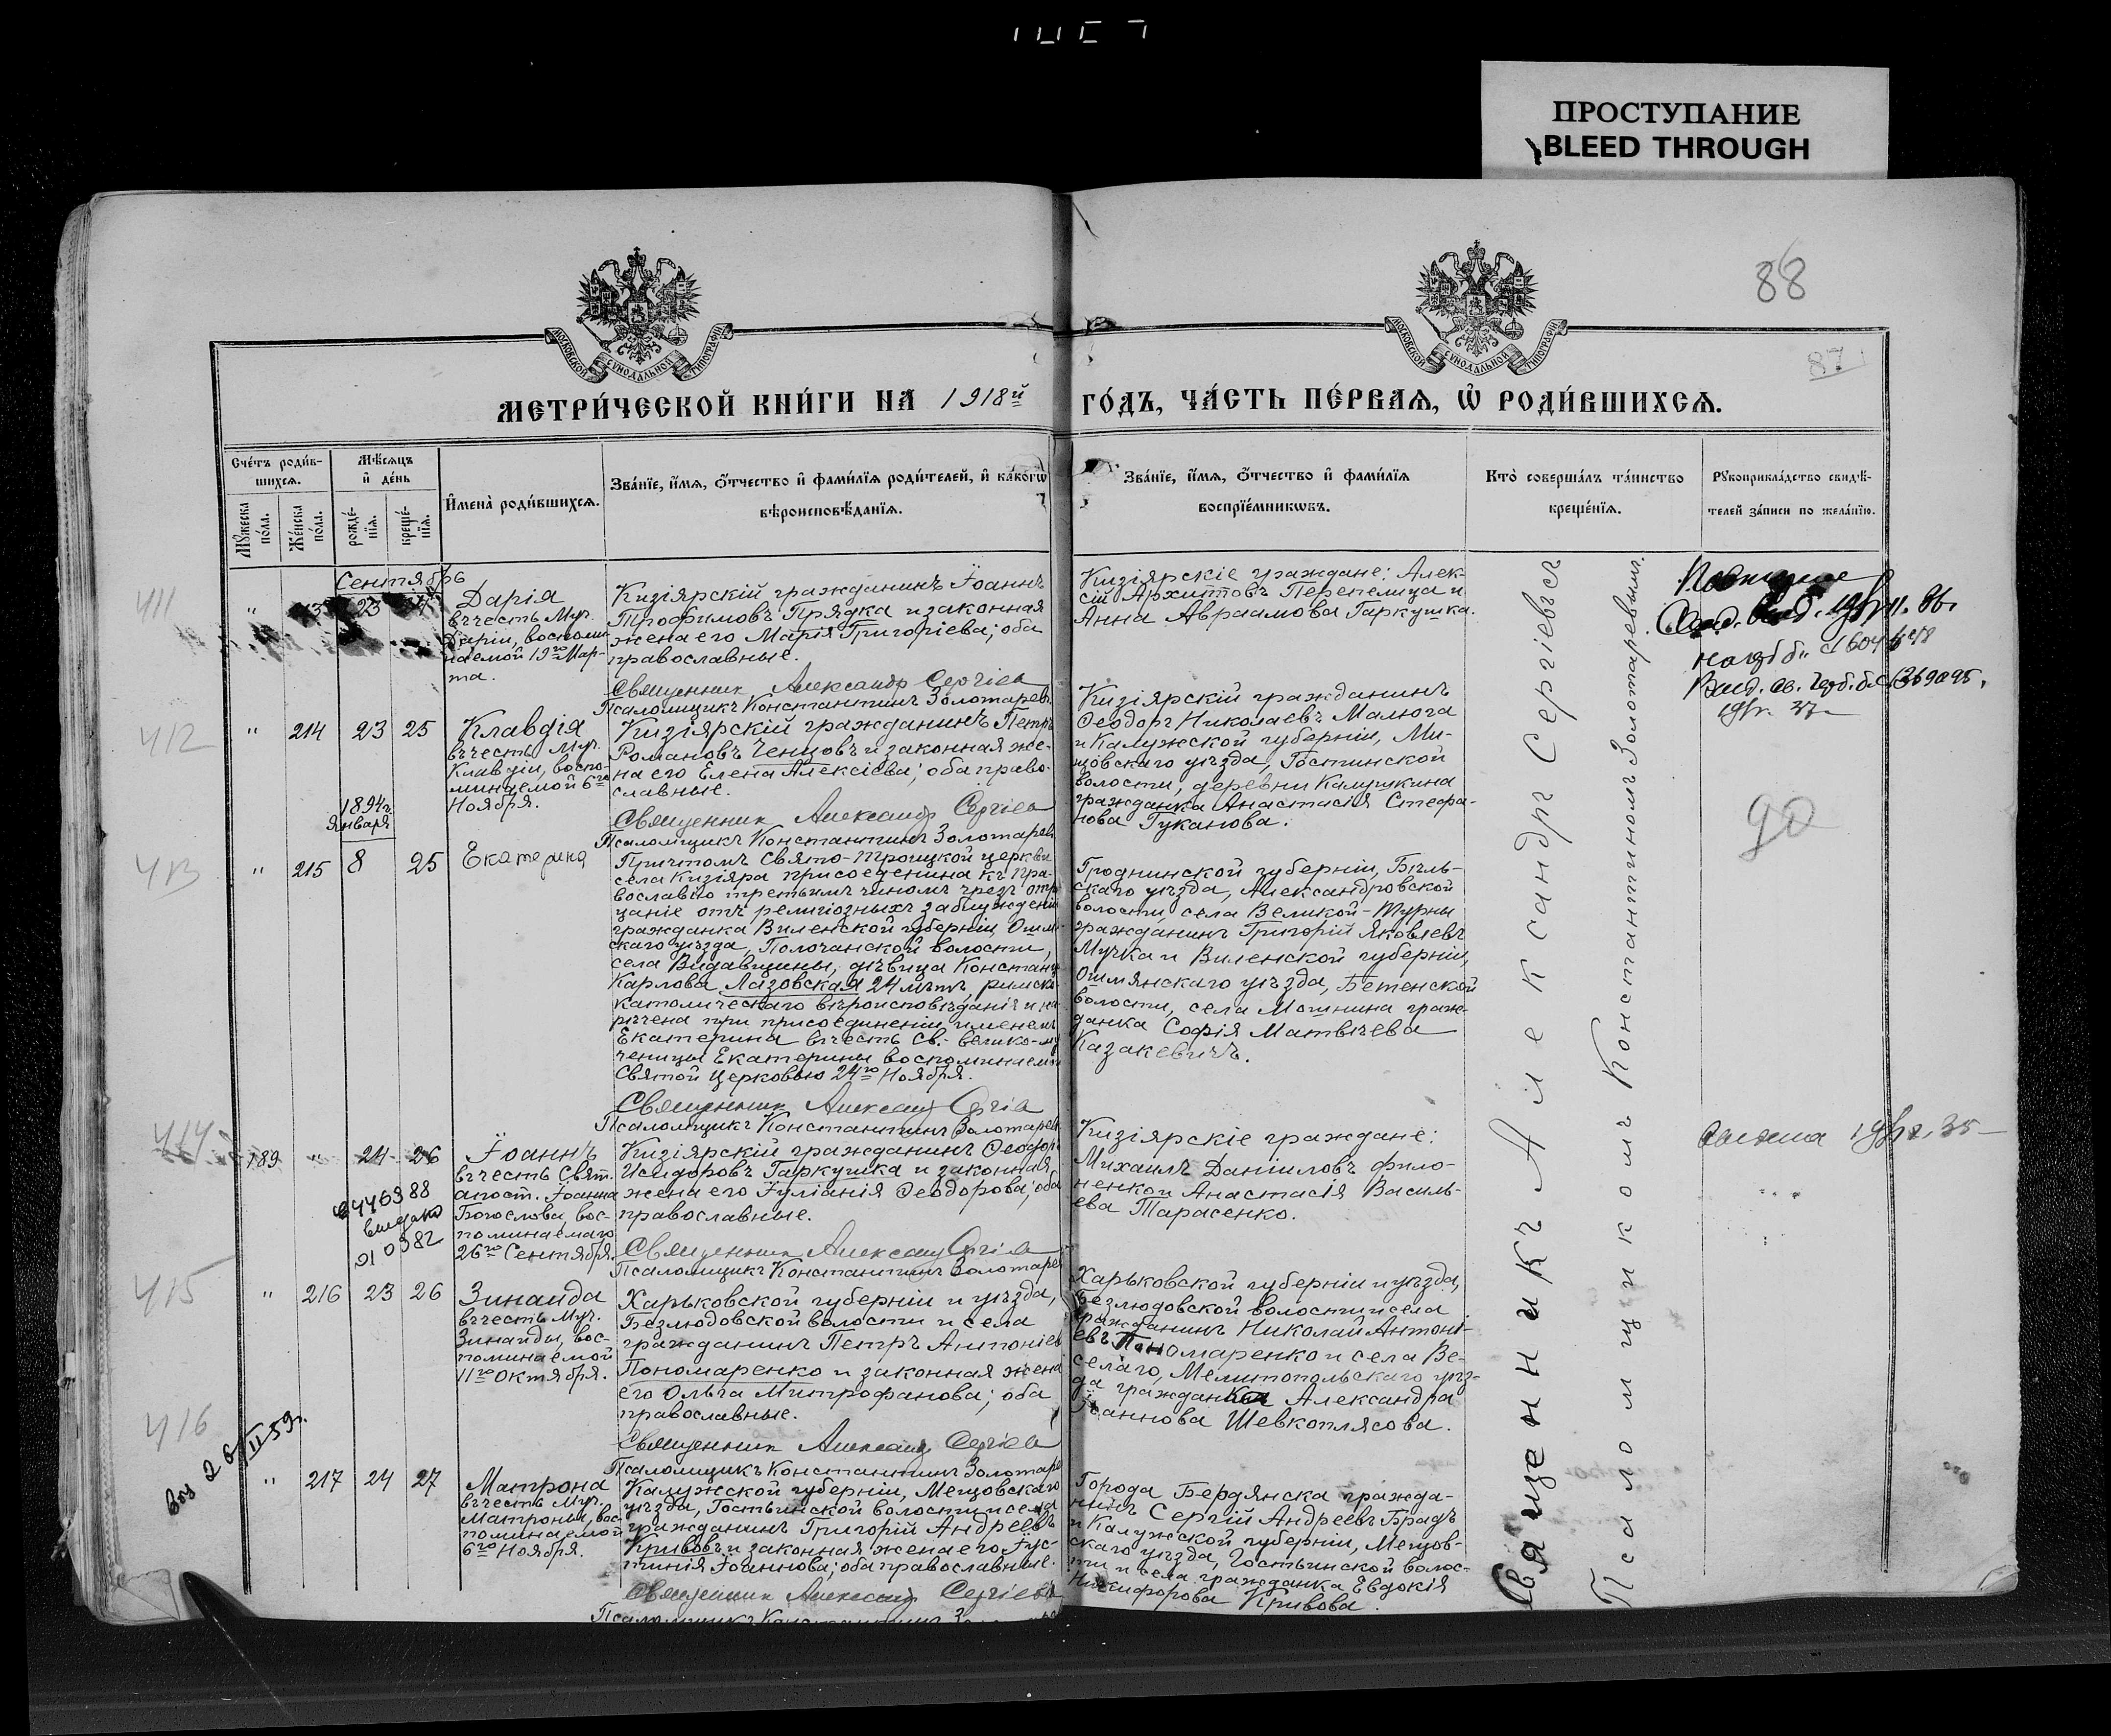 ПРОСТУПАНИЕ
BLEED THROUGH
88
87
МОСКОВСКОЙ СѴНОДАЛЬНОЙ ТИПОГРАФІИ
МОСКОВСКОЙ СѴНОДАЛЬНОЙ ТИПОГРАФІИ
МЕТРИ́ЧЕСКОЙ КНИ́ГИ НА 1918й ГО́ДЪ, ЧА́СТЬ ПЕ́РВАЯ, Ѿ РОДИ́ВШИХСЯ.
Сче́тъ роди́в-
шихся.
Мѣ́сяцъ
и҆ де́нь
Мꙋ́жеска
по́ла.
Же́нска
по́ла.
рожде́-
нїя.
креще́-
нїя.
И҆мена̀ роди́вшихся.
Зва́нїе, и҆́мя, ѻ҆́тчество и҆ фами́лїя роди́телей, и҆ како́гѡ
вѣроисповѣ́данїя.
Зва́нїе, и҆́мя, ѻ҆́тчество и҆ фами́лїя
воспрїе́мникѡвъ.
Кто̀ соверша́лъ та́инство
креще́нїя.
Рꙋкоприкла́дство свидѣ́-
телей за́писи по жела́нїю.
411
Сентябрь
" 23
Дарія
въ честь Муч.
Даріи, воспоми-
наемой 19го Мар-
та.
Кизіярскій гражданинъ Іоаннъ
Трофимовъ Прядка и законная
жена его Марія Григоріева; оба
православные.
Священник Александр Сергіев
Псаломщикъ Константинъ Золотаревъ
Кизіярскіе граждане: Алек-
сій Архиппов Перепелица и
Анна Авраамова Гаркушка.
412
" 214 23 25
Клавдія
въ честь Муч.
Клавдіи, воспо-
минаемой 6го
Ноября.
Кизіярскій гражданинъ Петръ
Романовъ Ченцовъ и законная же-
на его Елена Алексіева; оба право-
славные.
Священник Александр Сергіев
Псаломщикъ Константинъ Золотаревъ
Кизіярскій гражданинъ
Ѳеодоръ Николаевъ Малюга
и Калужской губерніи, Ми-
щовскаго уѣзда, Гостинской
волости, деревни Калушкина
гражданка Анастасія Стефа-
нова Гуканова.
90
413
1894г.
Января
" 215 8 25
Екатерина
Причтомъ Свято-Троицкой церкви
села Кизіяра присоединена къ Пра-
вославію третьимъ чиномъ чрезъ отри
цаніе отъ религіозныхъ заблужденій
гражданка Виленской губерніи, Ошмян-
скаго уѣзда, Полочанской волости,
села Видавщины, дѣвица Констанц
Карлова Лазовская 24 лѣтъ, римско-
католическаго вѣроисповѣданія и на-
речена при присоединеніи именемъ
Екатерина въ честь Св. велико-му
ченицы Екатерины воспоминаемой
Святой Церковью 24го Ноября.
Священник Александр Сергіев
Псаломщикъ Константинъ Золотаревъ
Гроднинской губерніи, Бѣль-
скаго уѣзда, Александровской
волости, села Великой-Турны
гражданинъ Григорій Яковлевъ
Мучка и Виленской губерніи,
Ошмянскаго уѣзда, Бетенской
волости, села Мошнина граж-
данка Софія Матвѣева
Казакевичъ.
414
189 " 24 26
Іоаннъ
въ честь Свят.
апост. Іоанна
Богослова, вос-
поминаемаго
26го Сентября.
Кизіярскій гражданинъ Ѳеодоръ
Исидоровъ Гаркушка и законная
жена его Іуліанія Ѳеодорова; оба
православные.
Священник Александр Сергіев
Псаломщикъ Константинъ Золотарев
Кизіярскіе граждане:
Михаилъ Даніиловъ Фило-
ненко и Анастасія Василь-
ева Тарасенко.
415
" 216 23 26
Зинаида
въ честь Муч.
Зинаиды, вос-
поминаемой
11го Октября.
Харьковской губерніи и уѣзда,
Безлюдовской волости и села
гражданинъ Петръ Антоніев
Пономаренко и законная жена
его Ольга Митрофанова; оба
православные.
Священник Александр Сергіев
Псаломщикъ Константинъ Золотарев
Харьковской губерніи и уѣзда,
Безлюдовской волости и села
гражданинъ Николай Антоні-
евъ Пономаренко и села Ве-
селаго, Мелитопольскаго уѣз-
да гражданка Александра
Іоаннова Шевкоплясова.
416
" 217 24 27
Матрона
въ честь Муч.
Матроны, вос-
поминаемой
6го Ноября.
Калужской губерніи, Мещовскаго
уѣзда, Гостьинской волости и села
гражданинъ Григорій Андреевъ
Кривовъ и законная жена его Іус-
тинія Іоаннова; оба православные.
Священник Александр Сергіевъ
Города Бердянска гражда-
нинъ Сергій Андреевъ Брадъ
и Калужской губерніи, Мещов-
скаго уѣзда, Гостьинской волос-
ти и села гражданка Евдокія
Никифорова Кривова.
Священникъ Александръ Сергіевъ
Псаломщикомъ Константиномъ Золотаревымъ.